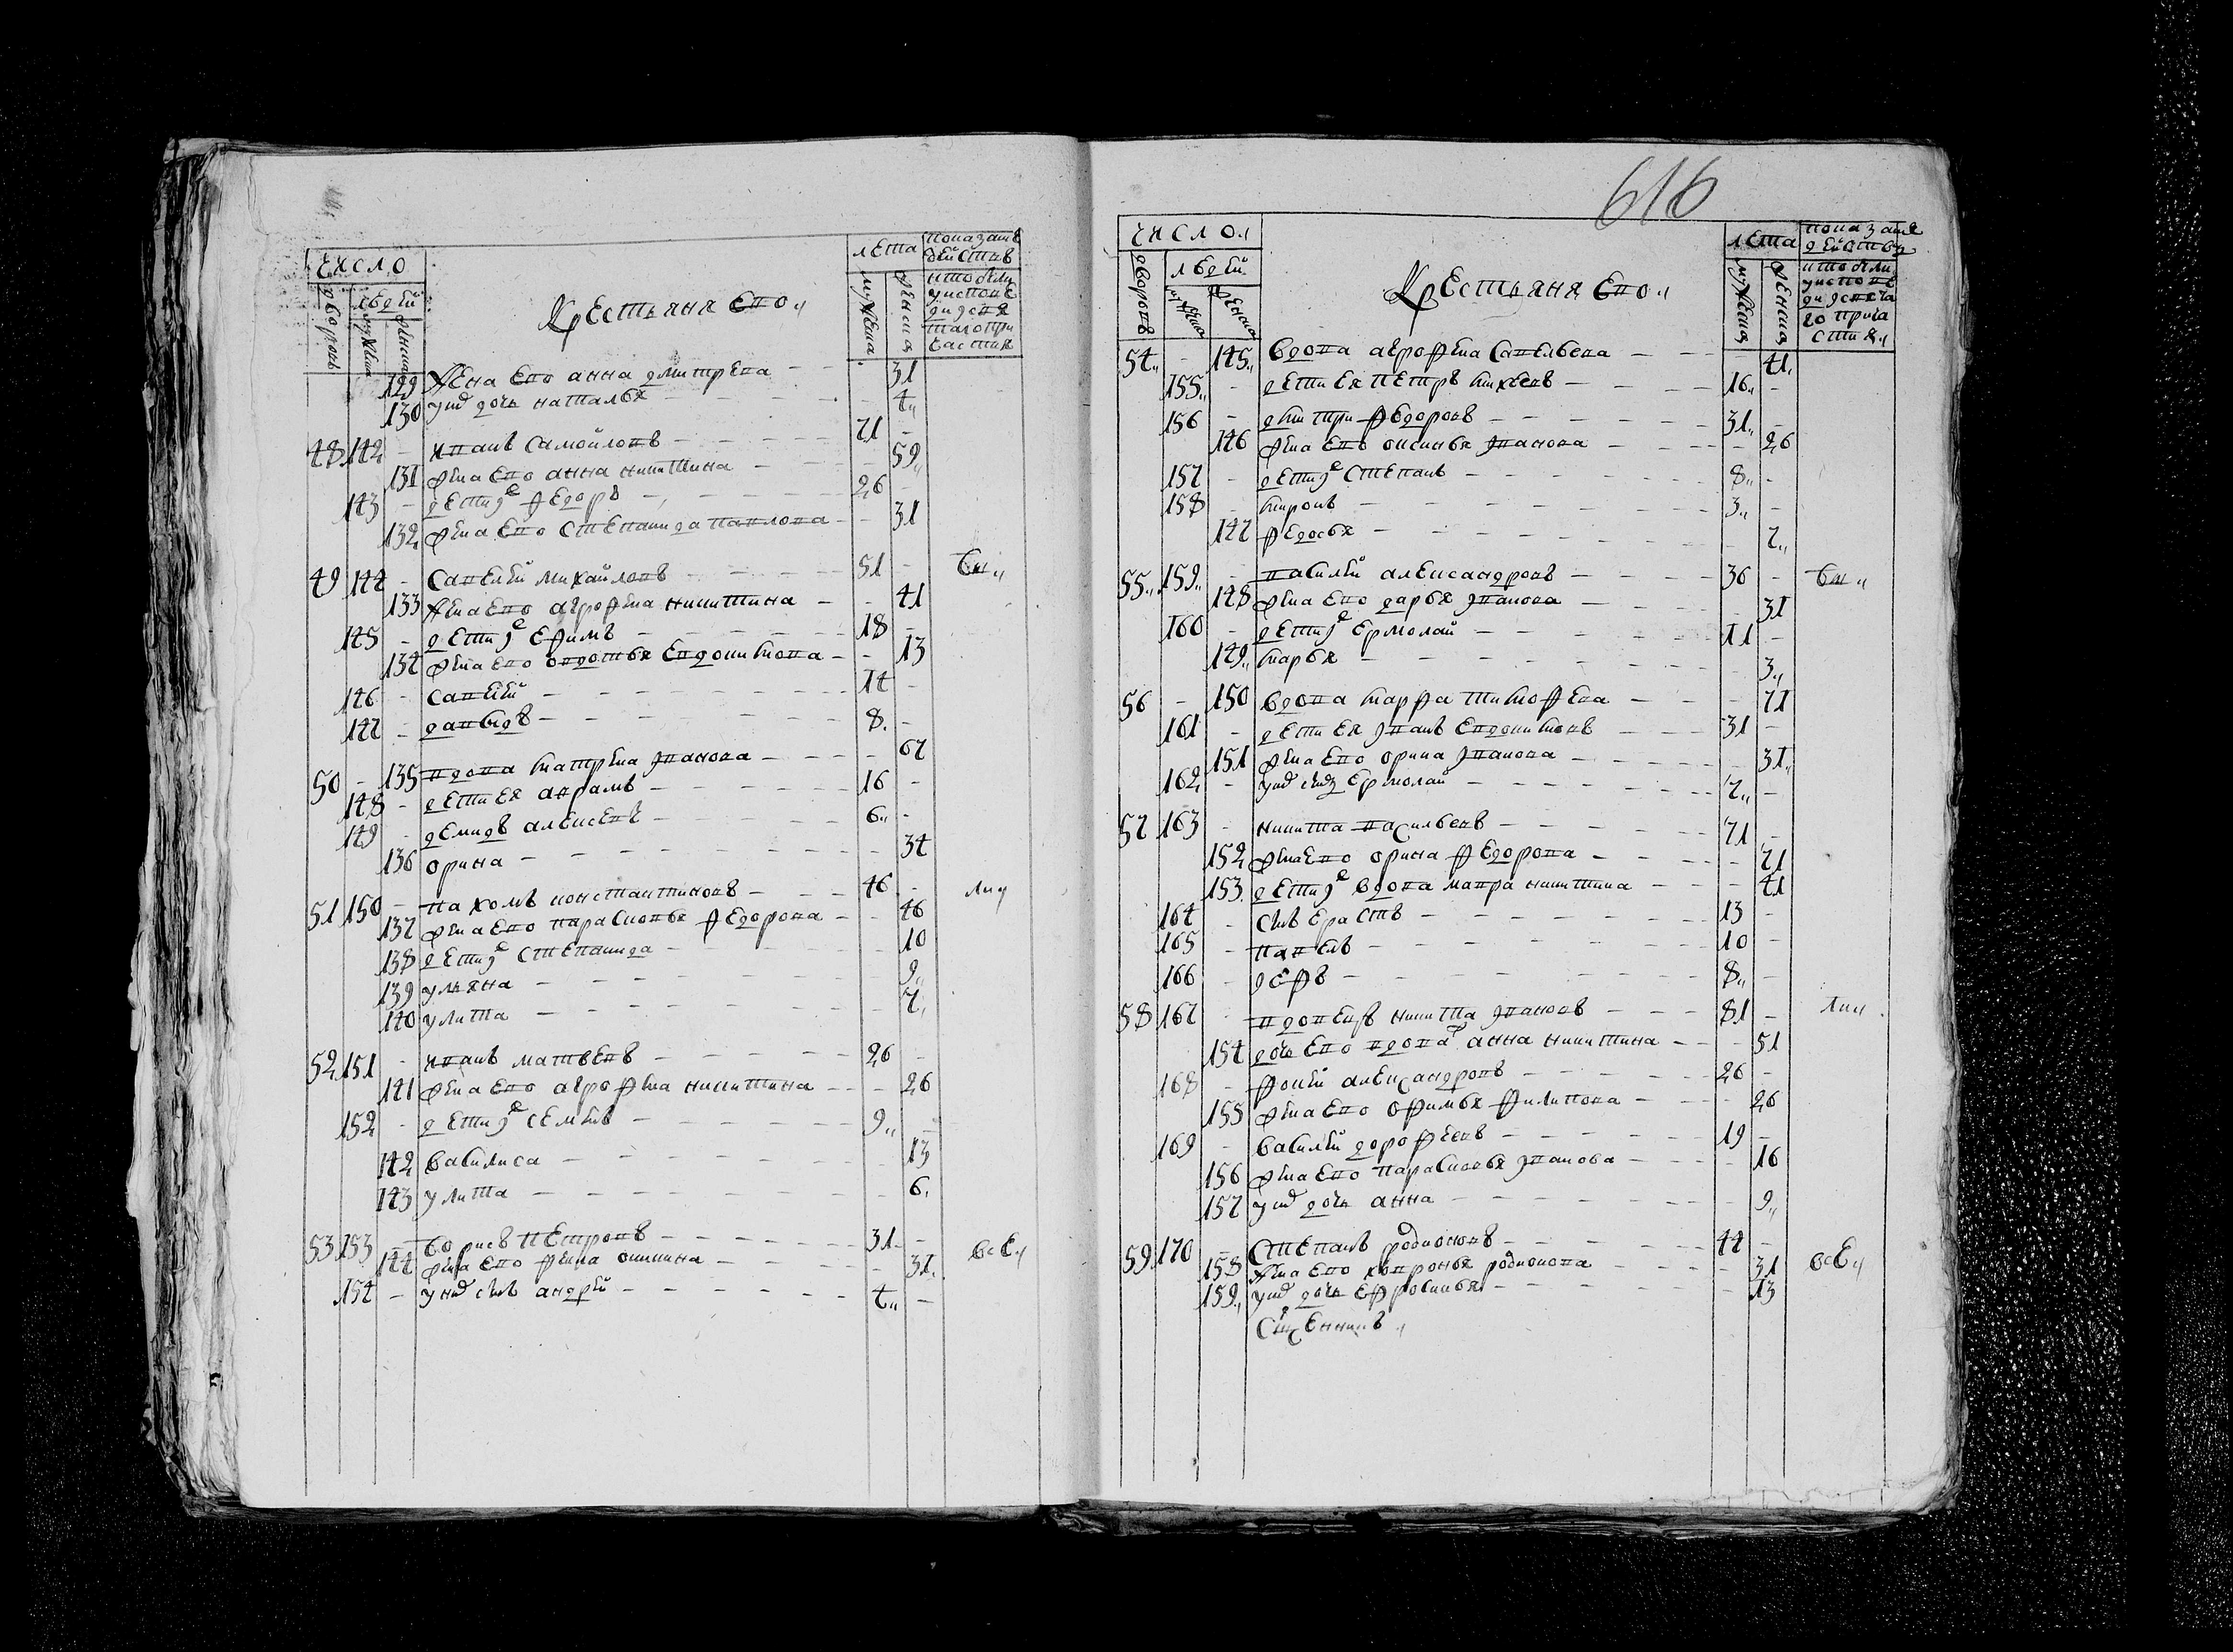 число
дворовъ
людей
мужеска
женска
Крестьяня его
лета
мужеска
женска
показание действъ кто были у исповеди и святаго причастия
129 жена его анна дмитрева - - 31
130 у них дочь наталья - - 4
48 142 - иванъ самойловъ - - 71 -
131 жена его анна никитина - - 59
143 - дети их федоръ - - 26 -
132 жена его степанида павлова - - 31
49 144 - савелей михайловъ - - 51 - были
133 жена его агрофена никитина - - 41
145 - дети их ефимъ - - 18 -
134 жена его овдотья евдокимова - - 13
146 - савелей - - 14 -
147 - давыдъ - - 8 -
50 - 135 вдова катрена иванова - - 67
148 - дети ея аврамъ - - 16 -
149 - демидъ алексевъ - - 6 -
136 орина - - 34
51 150 - пахомъ константиновъ - - 46 -
137 жена его парасковья федорова - - 46
138 дети их степанида - - 10
139 ульяна - - 9
140 улита - - 7
52 151 - иванъ матвевъ - - 26 -
141 жена его агрофена никитина - - 26
152 - дети их семенъ - - 9 -
142 василиса - - 13
143 улита - - 6
53 153 - борисъ петровъ - - 31 - все
144 жена его фекла - - 31
154 - у них сынъ андрей - - 4 -
616
число
дворовъ
людей
мужеска
женска
Крестьяня его
лета
мужеска
женска
показание действу кто были у исповеди и святаго причастия
54 - 145 вдова агрофена савельева - - 41
155 - дети ея петръ михеевъ - - 16 -
156 - дмитри федоровъ - - 31 -
146 жена его оксинья иванова - - 26
157 - дети их степанъ - - 8 -
158 - миронъ - - 3 -
147 федосья - - 7
55 159 - василей александровъ - - 36 - были
148 жена его дарья иванова - - 31
160 - дети их ермолай - - 11 -
149 марья - - 3
56 - 150 вдова марфа тимофева - - 71
161 - дети ея иванъ евдокимовъ - - 31 -
151 жена его орина иванова - - 31
162 - у них сынъ ермолай - - 7 -
57 163 - никита васильевъ - - 71 -
152 жена его орина федорова - - 71
153 дети их вдова мавра никитина - - 41
164 - сынъ ерастъ - - 13 -
165 - павелъ - - 10 -
166 - - - 8 -
58 167 - вдовецъ никита ивановъ - - 81 -
154 дочь его вдова анна никитина - - 51
168 - фокей александровъ - - 26 -
155 жена его офимья филипова - - 26
169 - василей дорофеевъ - - 19 -
156 жена его парасковья иванова - - 16
157 у них дочь анна - - 9
59 170 - степанъ родионовъ - - 44 - все
158 жена его хавронья родионова - - 31
159 у них дочь ефросинья - - 13
священникъ